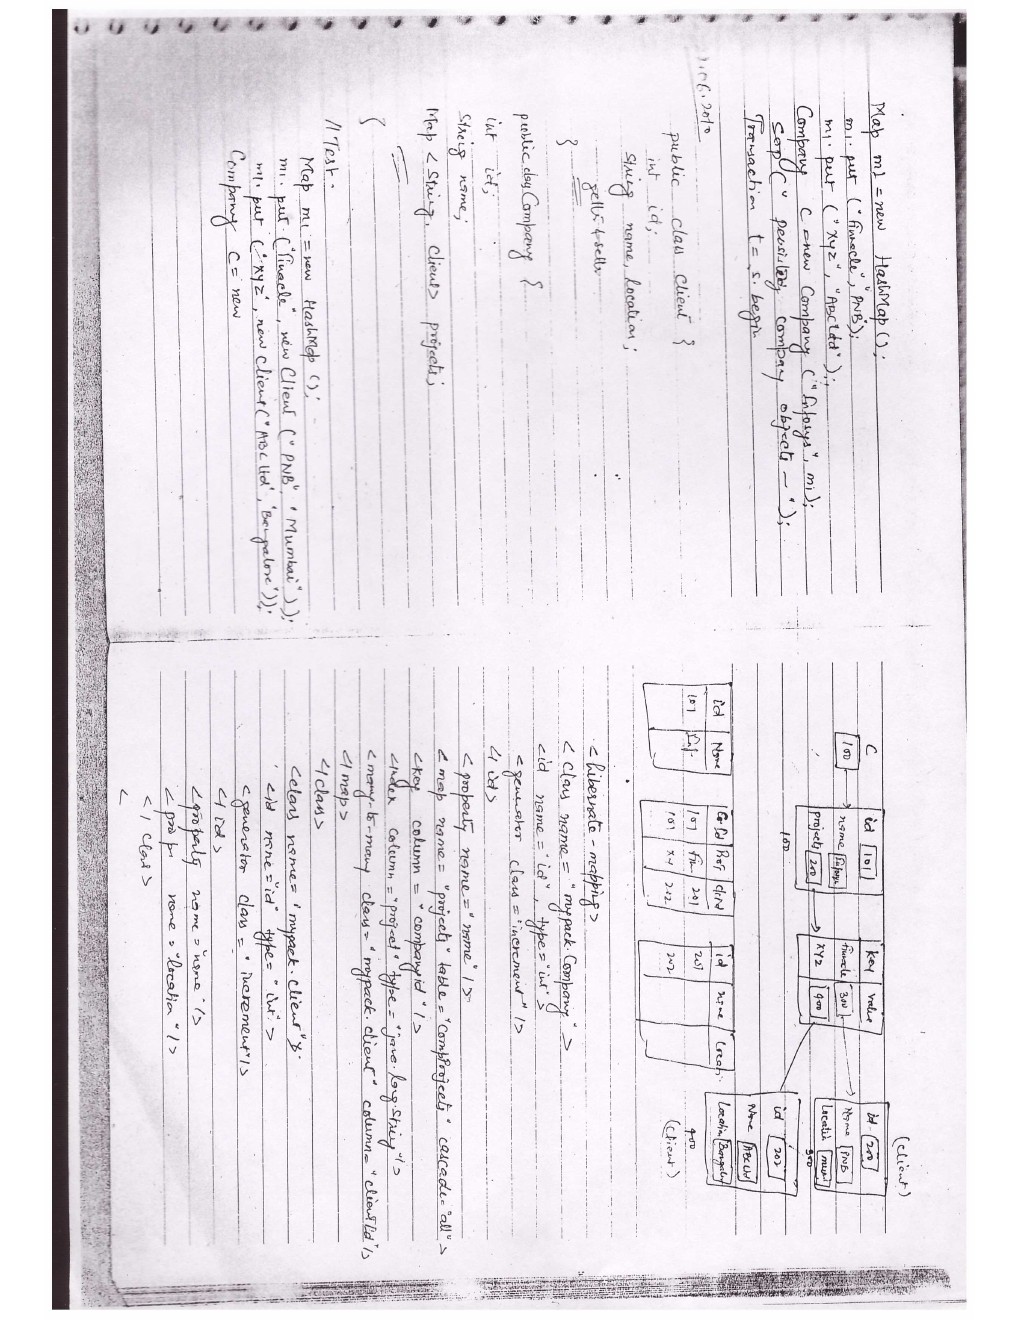 Map m1 = new HashMap();
m1. put ("Finacle", "PNB");
m1. put ("Xyz", "ABCLtd");
Company c = new Company ("Infosys", m1);
Sop (" persisting company objects — ");
Transaction t = s. begin
2010
public class client {
int id;
String name, location;
getts & setts
}
public class Company {
int id;
String name;
Map <String, client> projects;
}
// Test.
Map m1 = new HashMap ();
m1. put ("Finacle", new Client ("PNB", "Mumbai"));
m1. put ("xyz", new client ("ABC Ltd", "Bangalore"));
Company c = new
(client)
C
100
id 101
name Infosys
projects 200
100
key value
finacle 300
XYZ 400
id - 200
Name PNB
Locatin
300
id 202
Name ABCLtd
Locatin
400
(client)
id Name
101 Inf.
101 fin 201
101 xy 202
id name Locati
201
202
<hibernate-mapping>
<class name = "mypack.Company" >
<id name = "id", type = "int">
<generator class = "increment" />
</id>
<property name = "name" />
<map name = "projects" table = "compProjects" cascade = "all">
<key column = "companyid" />
<index column = "project" type = "java.lang.String" />
<many-to-many class = "mypack.client" column = "clientid" />
</map>
</class>
<class name = "mypack.client">
<id name = "id" type = "int" >
<generator class = "increment" />
</id>
<property name = "name" />
<prop name = "location" />
</class>
<